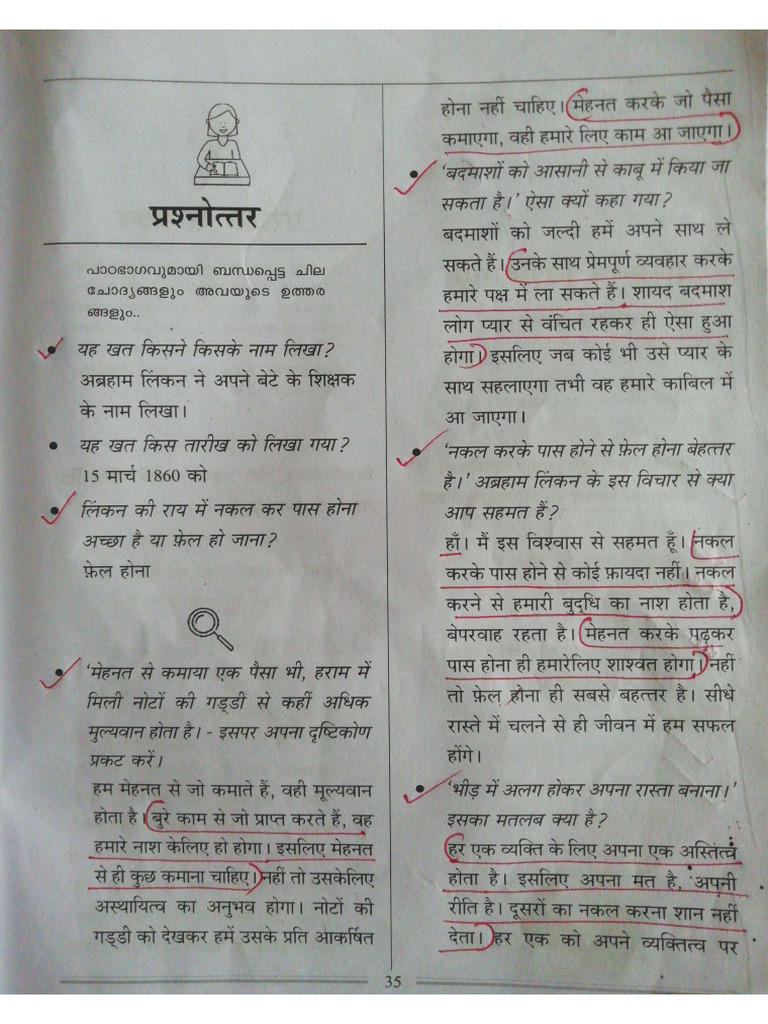 प्रश्नोत्तर
പാഠഭാഗവുമായി ബന്ധപ്പെട്ട ചില
ചോദ്യങ്ങളും അവയുടെ ഉത്തര
ങ്ങളും..
• यह खत किसने किसके नाम लिखा?
अब्रहाम लिंकन ने अपने बेटे के शिक्षक
के नाम लिखा।
• यह खत किस तारीख को लिखा गया?
15 मार्च 1860 को
• लिंकन की राय में नकल कर पास होना
अच्छा है या फ़ेल हो जाना?
फ़ेल होना
• 'मेहनत से कमाया एक पैसा भी, हराम में
मिली नोटों की गड्डी से कहीं अधिक
मुल्यवान होता है। - इसपर अपना दृष्टिकोण
प्रकट करें।
हम मेहनत से जो कमाते हैं, वही मूल्यवान
होता है। बुरे काम से जो प्राप्त करते हैं, वह
हमारे नाश केलिए हो होगा। इसलिए मेहनत
से ही कुछ कमाना चाहिए। नहीं तो उसकेलिए
अस्थायित्व का अनुभव होगा। नोटों की
गड्डी को देखकर हमें उसके प्रति आकर्षित
होना नहीं चाहिए। मेहनत करके जो पैसा
कमाएगा, वही हमारे लिए काम आ जाएगा।
• 'बदमाशों को आसानी से काबू में किया जा
सकता है।' ऐसा क्यों कहा गया?
बदमाशों को जल्दी हमें अपने साथ ले
सकते हैं। उनके साथ प्रेमपूर्ण व्यवहार करके
हमारे पक्ष में ला सकते हैं। शायद बदमाश
लोग प्यार से वंचित रहकर ही ऐसा हुआ
होगा। इसलिए जब कोई भी उसे प्यार के
साथ सहलाएगा तभी वह हमारे काबिल में
आ जाएगा।
• 'नकल करके पास होने से फ़ेल होना बेहत्तर
है।' अब्रहाम लिंकन के इस विचार से क्या
आप सहमत हैं?
हाँ। मैं इस विश्वास से सहमत हूँ। नकल
करके पास होने से कोई फ़ायदा नहीं। नकल
करने से हमारी बुद्धि का नाश होता है,
बेपरवाह रहता है। मेहनत करके पढ़कर
पास होना ही हमारेलिए शाश्वत होगा। नहीं
तो फ़ेल होना ही सबसे बहत्तर है। सीधे
रास्ते में चलने से ही जीवन में हम सफल
होंगे।
• 'भीड़ में अलग होकर अपना रास्ता बनाना।'
इसका मतलब क्या है?
हर एक व्यक्ति के लिए अपना एक अस्तित्व
होता है। इसलिए अपना मत है, अपनी
रीति है। दूसरों का नकल करना शान नहीं
देता। हर एक को अपने व्यक्तित्व पर
35